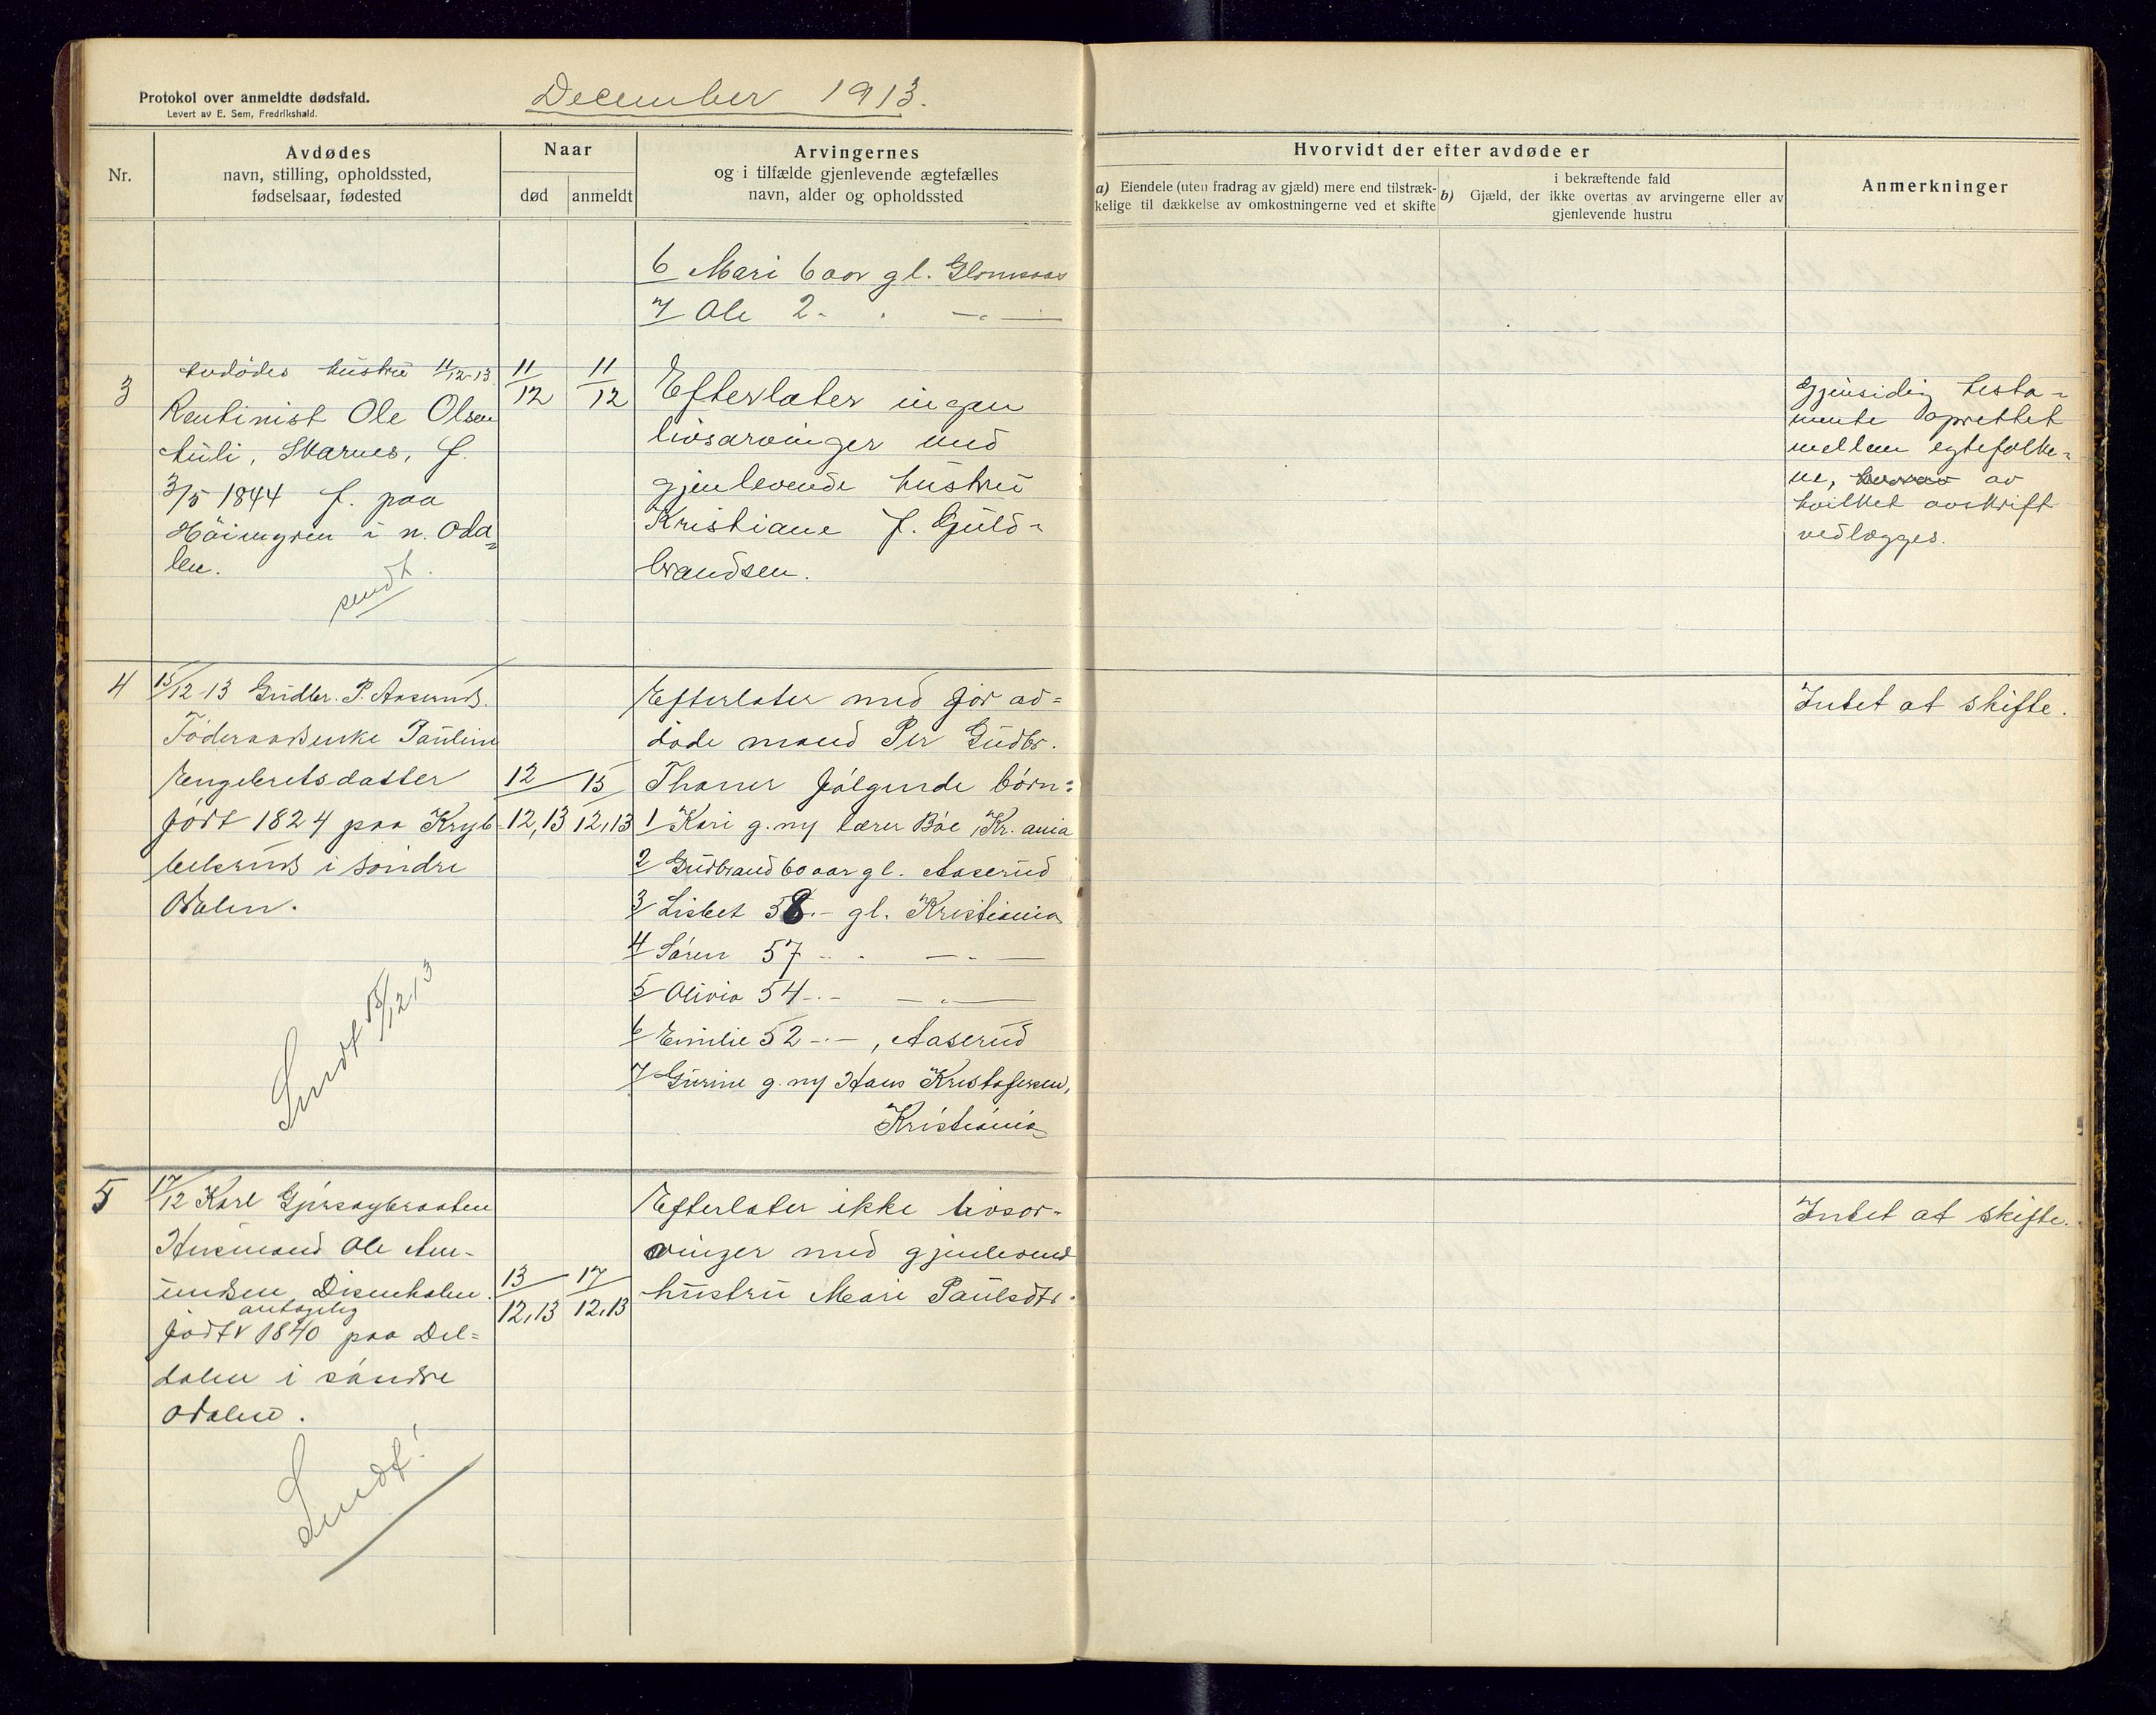 Protokol over anmeldte dødsfald.
Levert av E. Sem, Fredrikshald.
December 1913.
Nr.
Avdødes
navn, stilling, opholdssted,
fødselsaar, fødested
Naar
død
anmeldt
Arvingernes
og i tilfælde gjenlevende ægtefælles
navn, alder og opholdssted
Hvorvidt der efter avdøde er
a) Eiendele (uten fradrag av gjæld) mere end tilstræk-
kelige til dækkelse av omkostningerne ved et skifte
i bekræftende fald
b) Gjæld, der ikke overtas av arvingerne eller av
gjenlevende hustru
Anmerkninger
6 Mari 6 aar gl. Glomsaas
7 Ole 2 - . - " -
3
Avdødes hustru 11/12-13
Rentinist Ole Olsen
Auli, Skarnes, f.
3/5 1844 f. paa
Höimyren i n. Oda-
len.
sendt.
11/12
11/12
Efterlater ingen
livsarvinger med
gjenlevende hustru
Kristiane f. Guld-
brandsen.
Gjensidig testa-
mente oprettet
mellem egtefolke-
ne, av
hvilket avskrift
vedlægges.
4
15/12-13 Gudbr. P. Aaserud.
Föderaadsenke Pauline
Engebretsdatter
födt 1824 paa Kryb-
belsrud i söndre
Odalen.
Sendt 15/12 13
12/12,13
15/12,13
Efterlater med för av-
döde mand Per Gudbr.
Thaner fölgende börn:
1 Kari g. m/ lærer Böe, Kr.ania
2 Gudbrand 60 aar gl. Aaserud
3 Lisbet 58 - gl. Kristiania
4 Sören 57 - . - " -
5 Olivia 54 - . - - " -
6 Emilie 52 - . - , Aaserud
7 Gurine g. m/ Hans Kristofersen,
Kristiania
Intet at skifte.
5
17/12 Karl Gjersøybraaten
Husmand Ole Am-
undsen, Disenhalen.
antagelig
födt v 1840 paa Del-
dalen i söndre
Odalen.
Sendt!
13/12,13
17/12,13
Efterlater ikke livsar-
vinger med gjenlevend
hustru Mari Paulsdtr.
Intet at skifte.